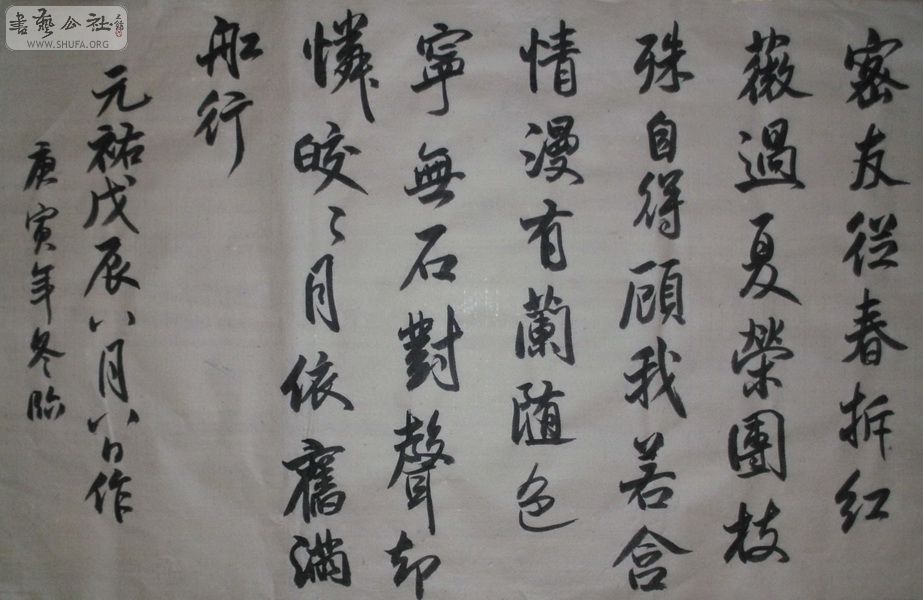 密友從春拆紅
薇過夏榮團枝
殊自得顧我若含
情漫有蘭随色
寧無石對聲却
憐皎〻月依舊滿
船行
元祐戊辰八月八日作
庚寅年冬臨
書藝公社
WWW.SHUFA.ORG